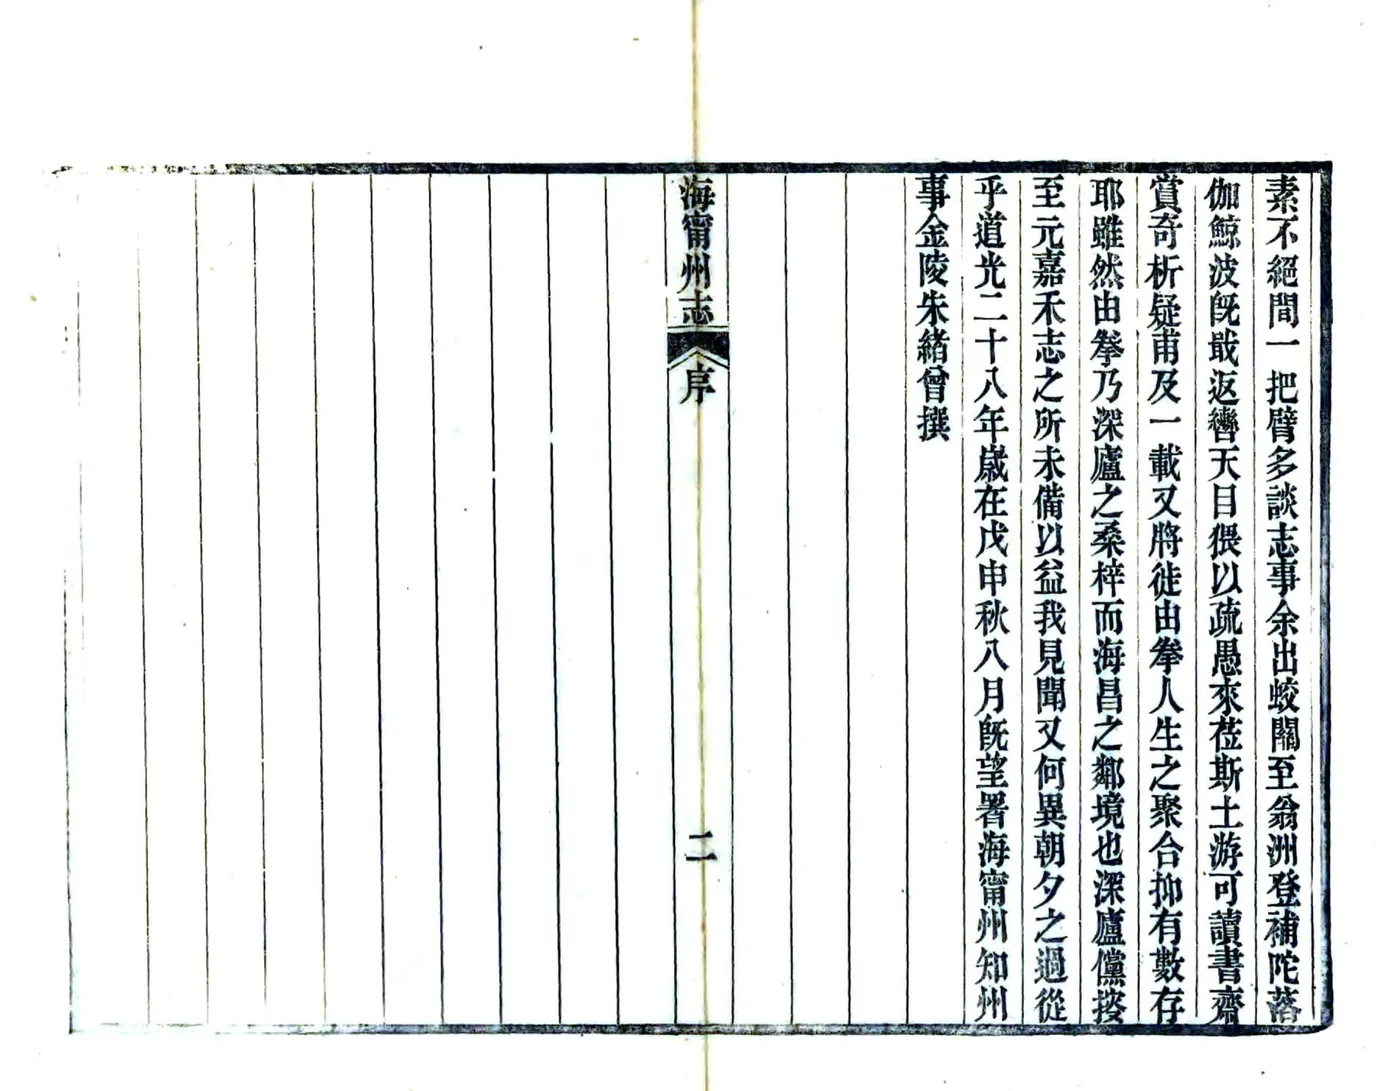 素不絕間一把臂多談志事余出蛟關至翁洲登補陀落
伽鯨波旣戢返轡天目猥以疏愚來莅斯土游可讀書齋
賞奇析疑甫及一載又將徙由拳人生之聚合抑有數存
耶雖然由拳乃深廬之桑梓而海昌之鄰境也深廬儻按
至元嘉禾志之所未備以益我見聞又何異朝夕之過從
乎道光二十八年歲在戊申秋八月旣望署海甯州知州
事金陵朱緒曾撰
海甯州志
序
二